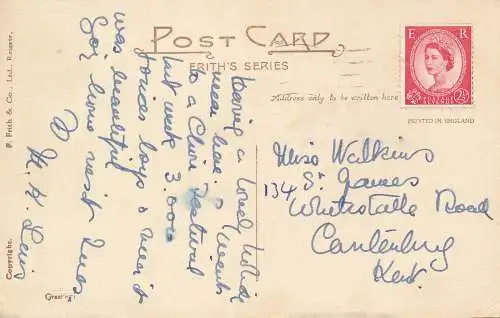 POST CARD
FRITH'S SERIES
Address only to be written here
E R
POSTAGE REVENUE
2½D
PRINTED IN ENGLAND
F. Frith & Co., Ltd., Reigate.
Copyright.
Greetings
Having a lovely
near here. Went
to a Choir Festival
last week 3,000
boys & men it
was beautiful
Going home next Tues
Miss Watkins
134 St James
Whitstable Road
Canterbury
Kent.